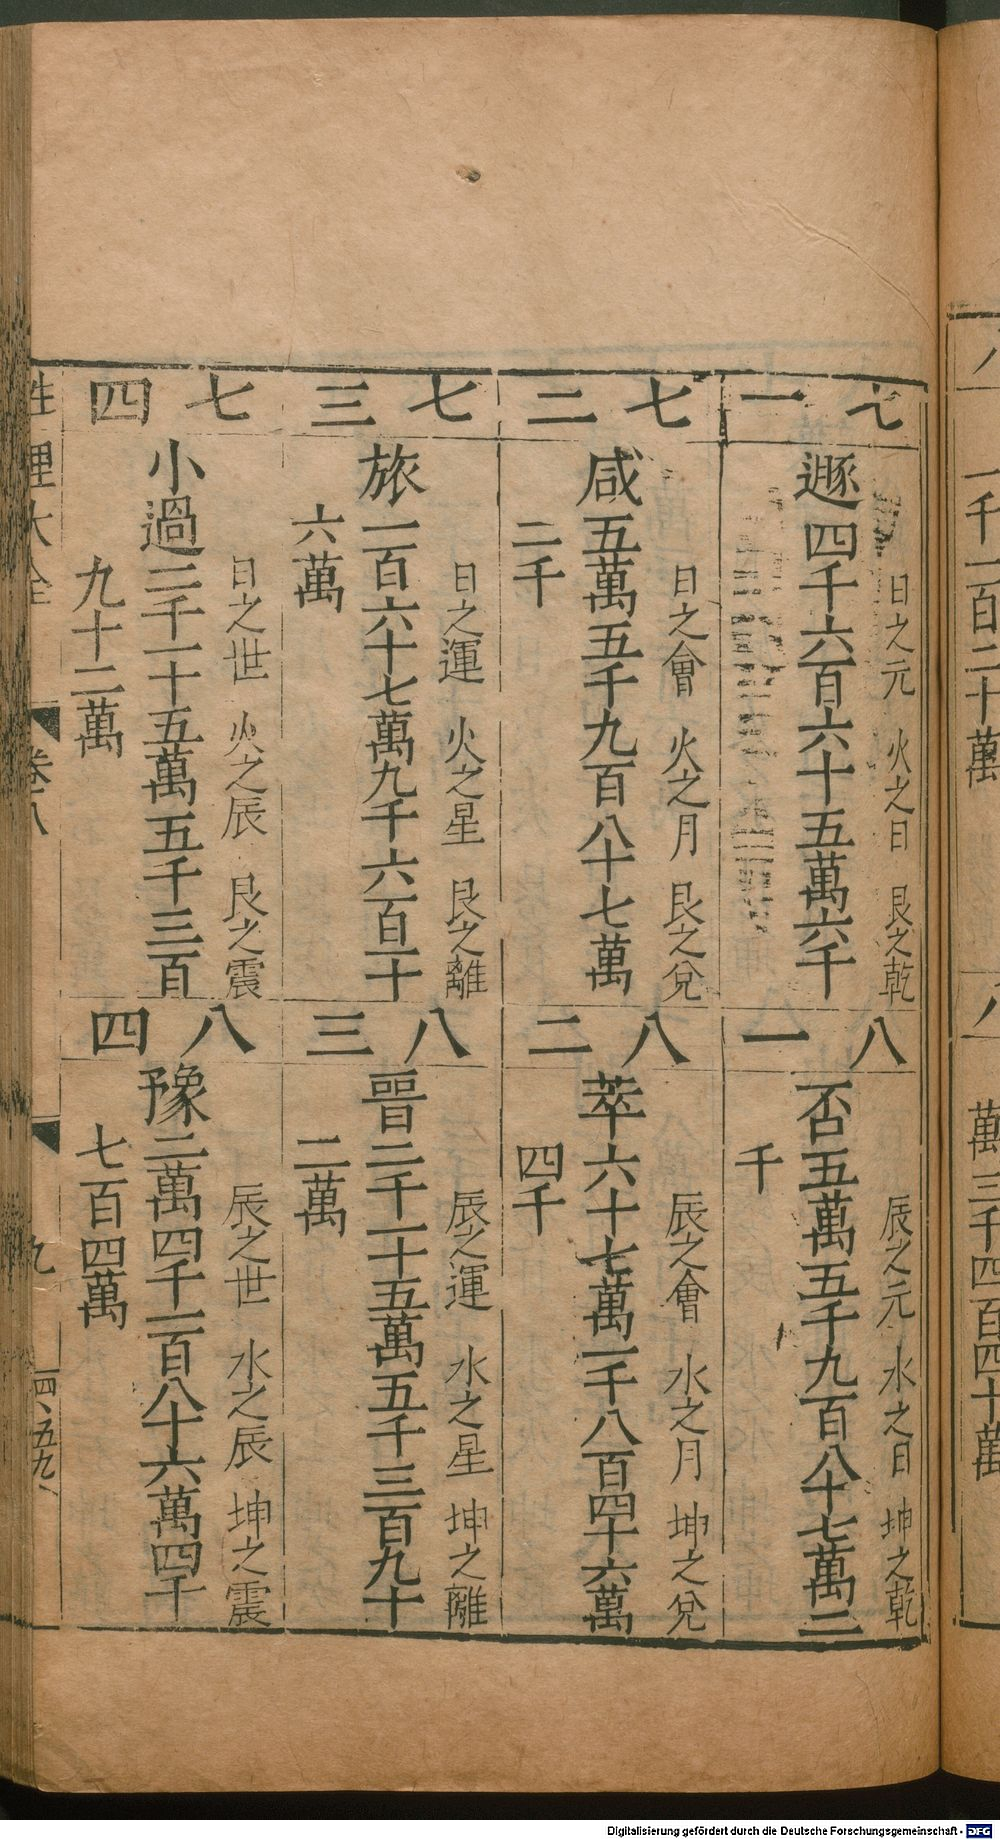 一千一百二十萬
八
萬三千四百四十萬
七一
日之元　火之日　艮之乾
遯四千六百六十五萬六千
七二
日之會　火之月　艮之兌
咸五萬五千九百八十七萬
二千
七三
日之運　火之星　艮之離
旅一百六十七萬九千六百一十
六萬
七四
日之世　火之辰　艮之震
小過二千一十五萬五千三百
九十二萬
八一
辰之元　水之日　坤之乾
否五萬五千九百八十七萬二
千
八二
辰之會　水之月　坤之兌
萃六十七萬一千八百四十六萬
四千
八三
辰之運　水之星　坤之離
晉二千一十五萬五千三百九十
二萬
八四
辰之世　水之辰　坤之震
豫二萬四千一百八十六萬四千
七百四萬
性理大全　卷八　九
Digitalisierung gefördert durch die Deutsche Forschungsgemeinschaft - DFG